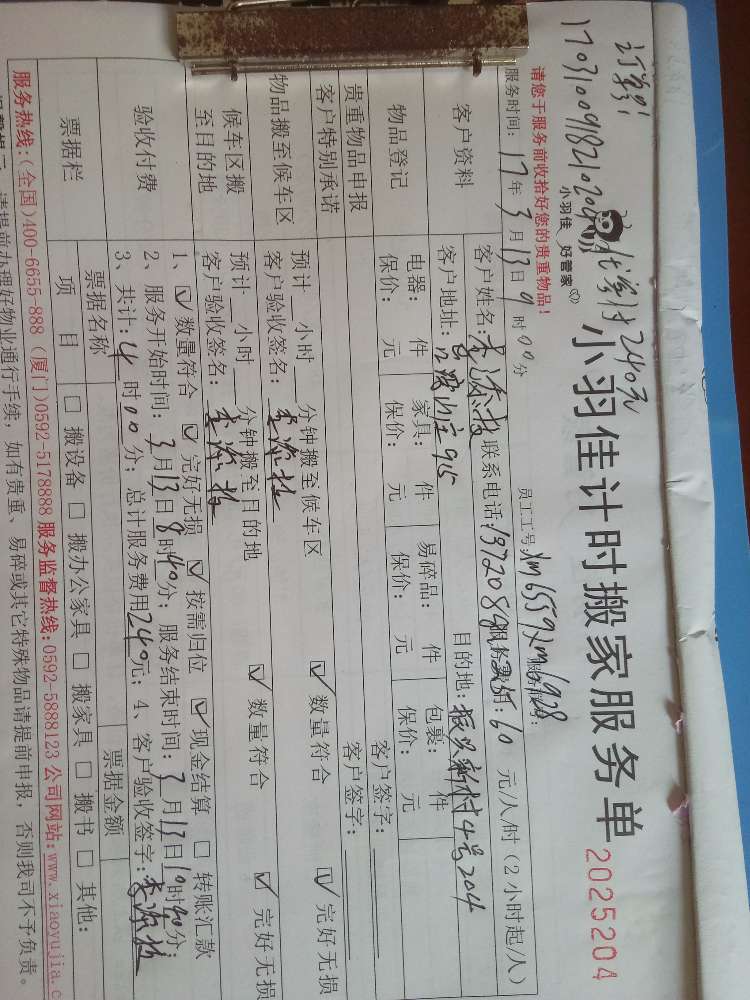 订单号
1703100918210204 代签付240元
小羽佳 好管家
小羽佳计时搬家服务单
2025204
请您于服务前收拾好您的贵重物品!
员工工号:xm6559 xm6928 服务单号:
服务时间: 17年3月13日9时00分
60元/人/时(2小时起/人)
客户资料
客户姓名: 联系电话:
客户地址: 山庄915 目的地: 振兴新村4号204
物品登记
电器: 件 家具: 件 易碎品: 件 包裹: 件
保价: 元 保价: 元 保价: 元 保价: 元
贵重物品申报 客户签字:
客户特别承诺 客户签字:
物品搬至候车区
预计 小时 分钟搬至候车区 ☑ 数量符合 ☑ 完好无损
客户验收签名:
候车区搬至目的地
预计 小时 分钟搬至目的地 ☑ 数量符合 ☑ 完好无损
客户验收签名:
验收付费
1、☑ 数量符合 ☑ 完好无损 ☑ 按需归位 ☑ 现金结算 □ 转账汇款
2、服务开始时间: 3月13日8时40分; 服务结束时间: 3月13日10时40分;
3、共计: 4时00分; 总计服务费用240元; 4、客户验收签字:
票据栏
票据名称 票据金额
项目 □ 搬设备 □ 搬办公家具 □ 搬家具 □ 搬书 □ 其他:
服务热线:(全国)400-6655-888 (厦门)0592-5178888 服务监督热线:0592-5888123 公司网站:www.xiaoyujia.c
请提前办理好物业通行手续, 如有贵重、易碎或其它特殊物品请提前申报, 否则我司不予负责。